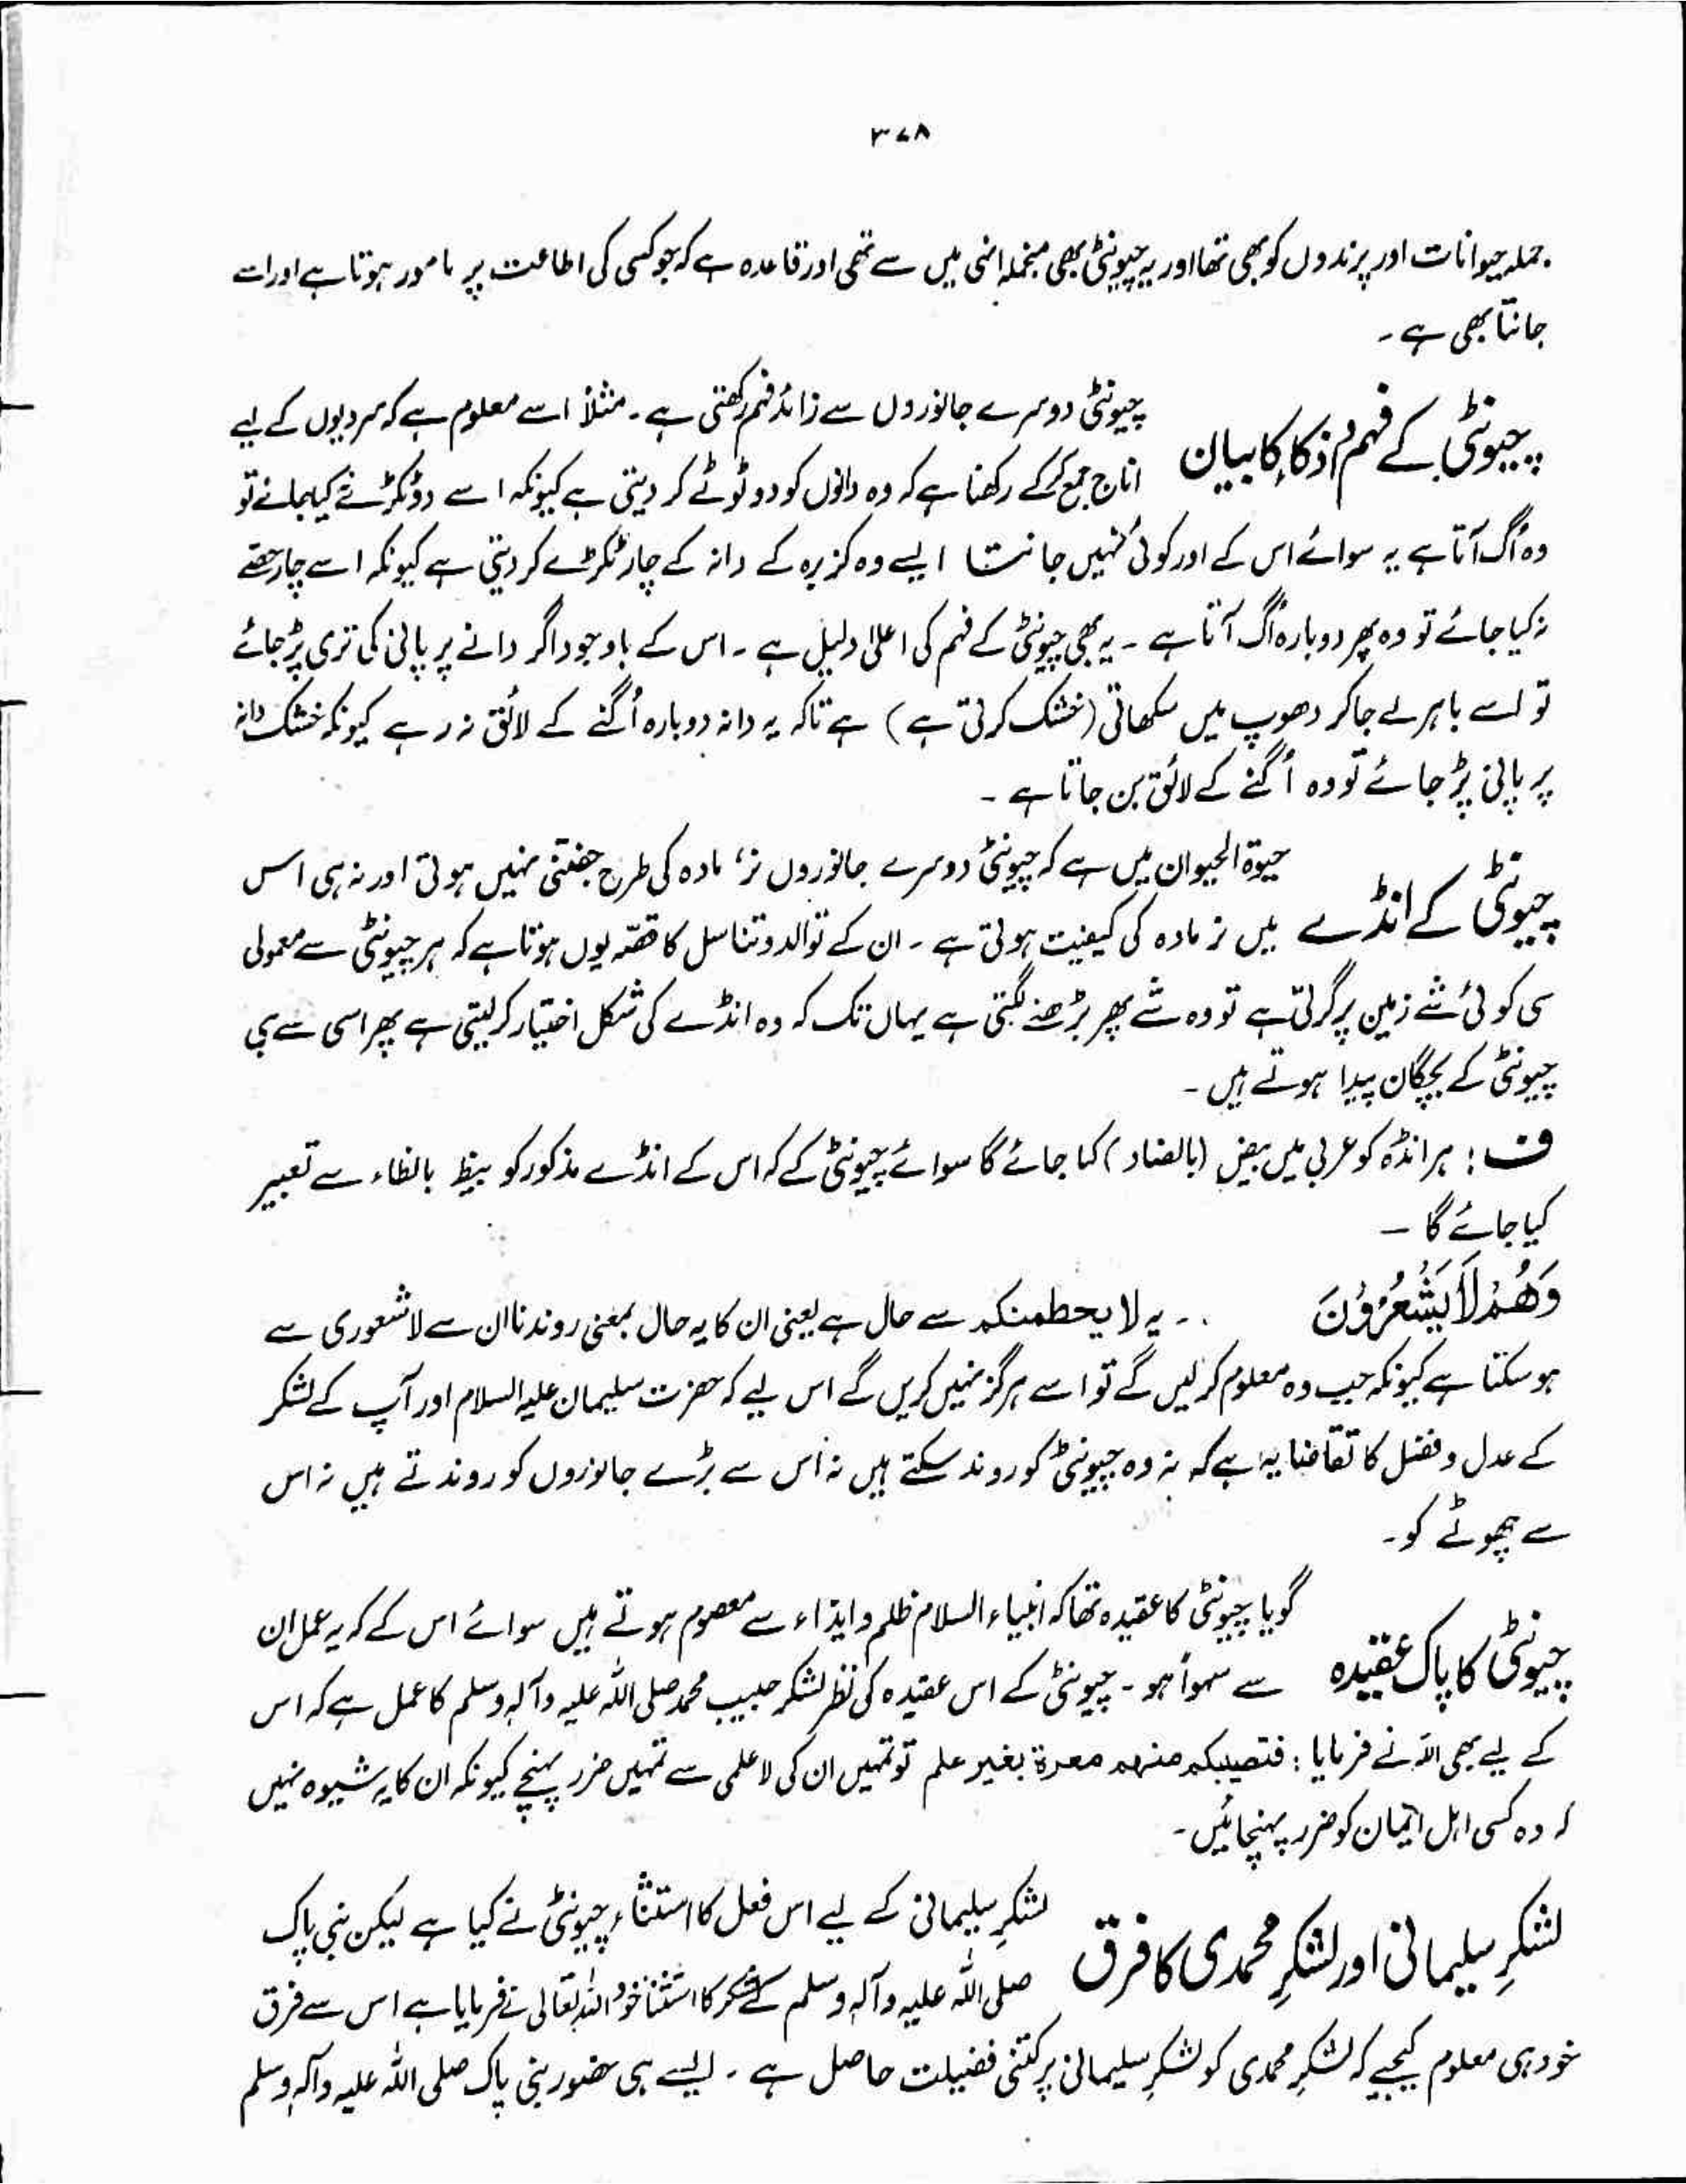 ۳۷۸
جملہ حیوانات اور پرندوں کو بھی تھا اور یہ چیونٹی بھی منجملہ انہی میں سے تھی اور قاعدہ ہے کہ جو کسی کی اطاعت پر مامور ہوتا ہے اور اسے
جانتا بھی ہے ۔
چیونٹی کے فہم و ذکاء کا بیان
چیونٹی دوسرے جانوروں سے زائد فہم رکھتی ہے ۔ مثلاً اسے معلوم ہے کہ سردیوں کے لیے
اناج جمع کرکے رکھنا ہے کہ وہ دانوں کو دو ٹوٹے کر دیتی ہے کیونکہ اسے دو ٹکڑے نہ کیا جائے تو
وہ اُگ آتا ہے یہ سوائے اس کے اور کوئی نہیں جانتا ایسے وہ کزبرہ کے دانہ کے چار ٹکڑے کر دیتی ہے کیونکہ اسے چار حصے
نہ کیا جائے تو وہ پھر دوبارہ اُگ آتا ہے ۔ یہ بھی چیونٹی کے فہم کی اعلیٰ دلیل ہے ۔ اس کے باوجود اگر دانے پر پانی کی تری پڑ جائے
تو اسے باہر لے جا کر دھوپ میں سکھاتی (خشک کرتی ہے) ہے تاکہ یہ دانہ دوبارہ اُگنے کے لائق نہ رہے کیونکہ خشک دانہ
پر پانی پڑ جائے تو وہ اُگنے کے لائق بن جاتا ہے ۔
چیونٹی کے انڈے
حیوۃ الحیوان میں ہے کہ چیونٹی دوسرے جانوروں نر، مادہ کی طرح جفتی نہیں ہوتی اور نہ ہی اس
میں نر مادہ کی کیفیت ہوتی ہے ۔ ان کے توالد و تناسل کا قصّہ یوں ہوتا ہے کہ ہر چیونٹی سے معمولی
سی کوئی شے زمین پر گرتی ہے تو وہ شے پھر بڑھنے لگتی ہے یہاں تک کہ وہ انڈے کی شکل اختیار کر لیتی ہے پھر اسی سے ہی
چیونٹی کے بچگان پیدا ہوتے ہیں ۔
ف : ہر انڈہ کو عربی میں بیض (بالضاد) کہا جائے گا سوائے چیونٹی کے کہ اس کے انڈے مذکور کو بیظ بالظاء سے تعبیر
کیا جائے گا ۔
وَهُمْ لَا يَشْعُرُوْنَ ۔۔ یہ لا یحطمنکم سے حال ہے یعنی ان کا یہ حال بمعنی روندنا ان سے لاشعوری سے
ہو سکتا ہے کیونکہ جب وہ معلوم کر لیں گے تو اسے ہرگز نہیں کریں گے اس لیے کہ حضرت سلیمان علیہ السلام اور آپ کے لشکر
کے عدل و فضل کا تقاضا یہ ہے کہ نہ وہ چیونٹی کو روند سکتے ہیں نہ اس سے بڑے جانوروں کو روندتے ہیں نہ اس
سے چھوٹے کو ۔
چیونٹی کا پاک عقیدہ
گویا چیونٹی کا عقیدہ تھا کہ انبیاء السلام ظلم و ایذاء سے معصوم ہوتے ہیں سوائے اس کے کہ یہ عمل ان
سے سہواً ہو ۔ چیونٹی کے اس عقیدہ کی نظر لشکر حبیب محمد صلی اللہ علیہ وآلہ وسلم کا عمل ہے کہ اس
کے لیے بھی اللہ نے فرمایا : فتصیبکم منہم معرۃ بغیر علم تو تمہیں ان کی لاعلمی سے تمہیں ضرر پہنچے کیونکہ ان کا یہ شیوہ نہیں
کہ وہ کسی اہل ایمان کو ضرر پہنچائیں ۔
لشکرِ سلیمانی اور لشکرِ محمدی کا فرق
لشکرِ سلیمانی کے لیے اس فعل کا استثناء چیونٹی نے کیا ہے لیکن نبی پاک
صلی اللہ علیہ وآلہ وسلم کے لشکر کا استثنا خود اللہ تعالیٰ نے فرمایا ہے اس سے فرق
خود ہی معلوم کیجیے کہ لشکرِ محمدی کو لشکرِ سلیمانی پر کتنی فضیلت حاصل ہے ۔ ایسے ہی حضور نبی پاک صلی اللہ علیہ وآلہ وسلم